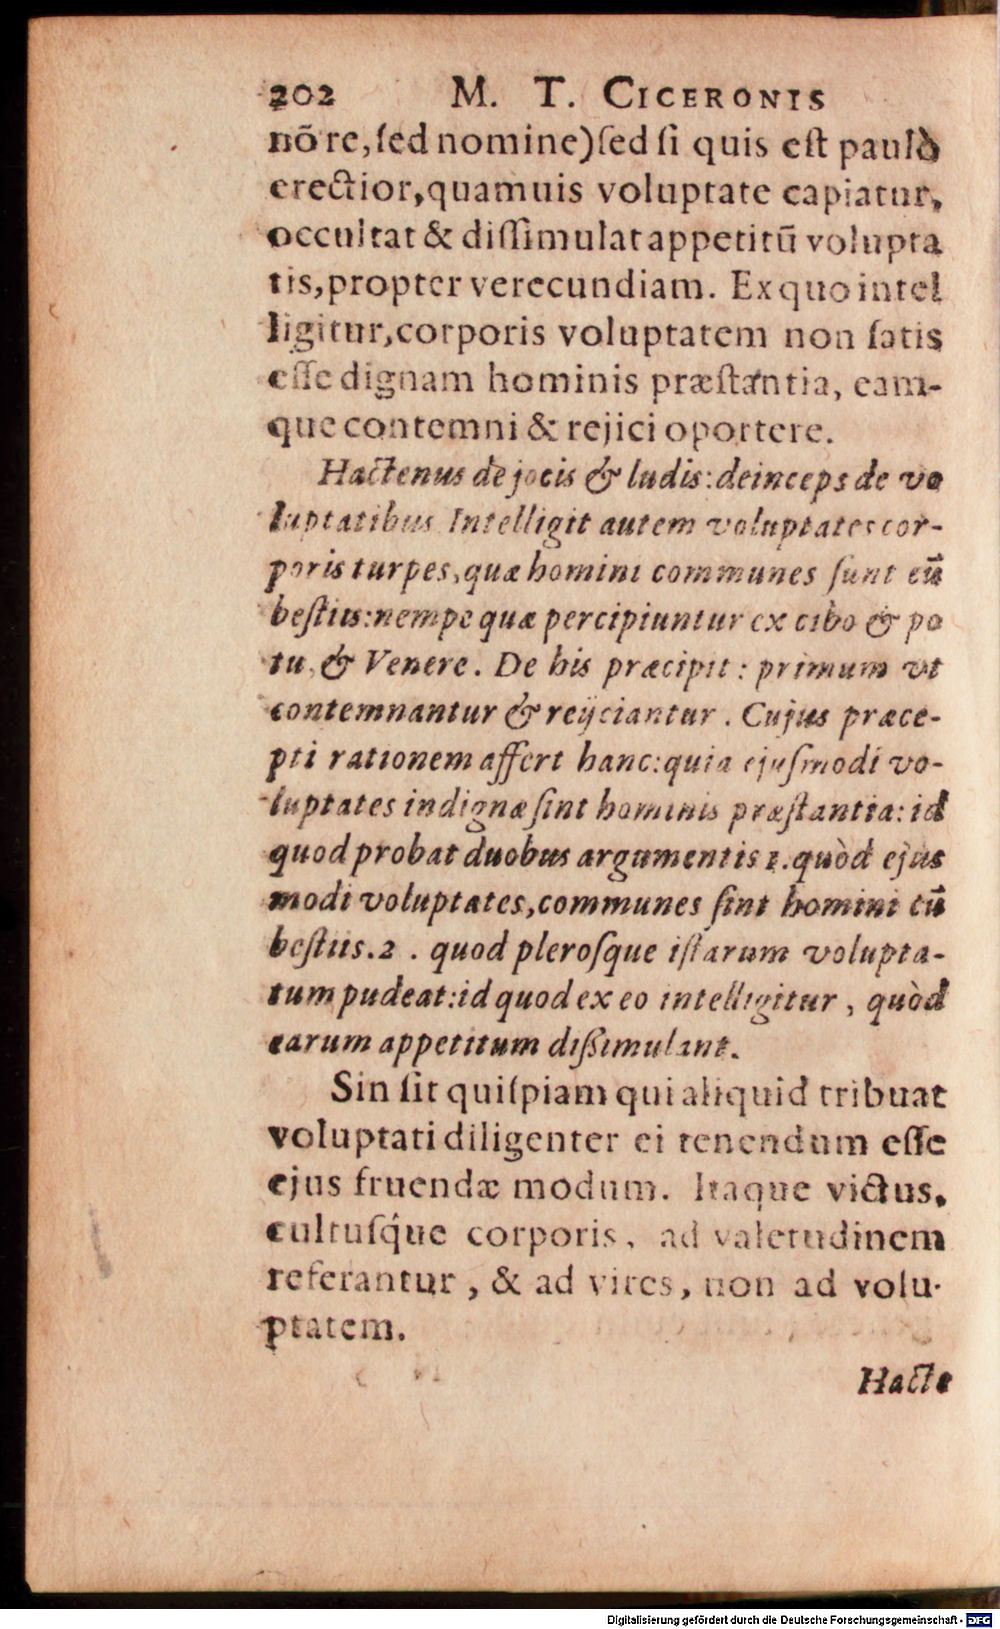 202 M. T. CICERONIS
nõ re, ſed nomine) ſed ſi quis eſt paulò
erectior, quamuis voluptate capiatur,
occultat & diſſimulat appetitũ volupta
tis, propter verecundiam. Ex quo intel
ligitur, corporis voluptatem non ſatis
eſſe dignam hominis præſtantia, eam-
que contemni & rejici oportere.
Hactenus de jocis & ludis: deinceps de vo
luptatibus Intelligit autem voluptates cor-
poris turpes, quæ homini communes ſunt cũ
beſtiis: nempe quæ percipiuntur ex cibo & po
tu, & Venere. De his præcipit: primum vt
contemnantur & reijciantur. Cujus præce-
pti rationem affert hanc: quia ejuſmodi vo-
luptates indignæ ſint hominis præſtantia: id
quod probat duobus argumentis 1. quòd ejus
modi voluptates, communes ſint homini cũ
beſtiis. 2. quod pleroſque iſtarum volupta-
tum pudeat: id quod ex eo intelligitur, quòd
earum appetitum dißimulant.
Sin ſit quiſpiam qui aliquid tribuat
voluptati diligenter ei tenendum eſſe
ejus fruendæ modum. Itaque victus,
cultuſq́ue corporis, ad valetudinem
referantur, & ad vires, non ad volu-
ptatem.
Hacte
Digitalisierung gefördert durch die Deutsche Forschungsgemeinschaft - DFG